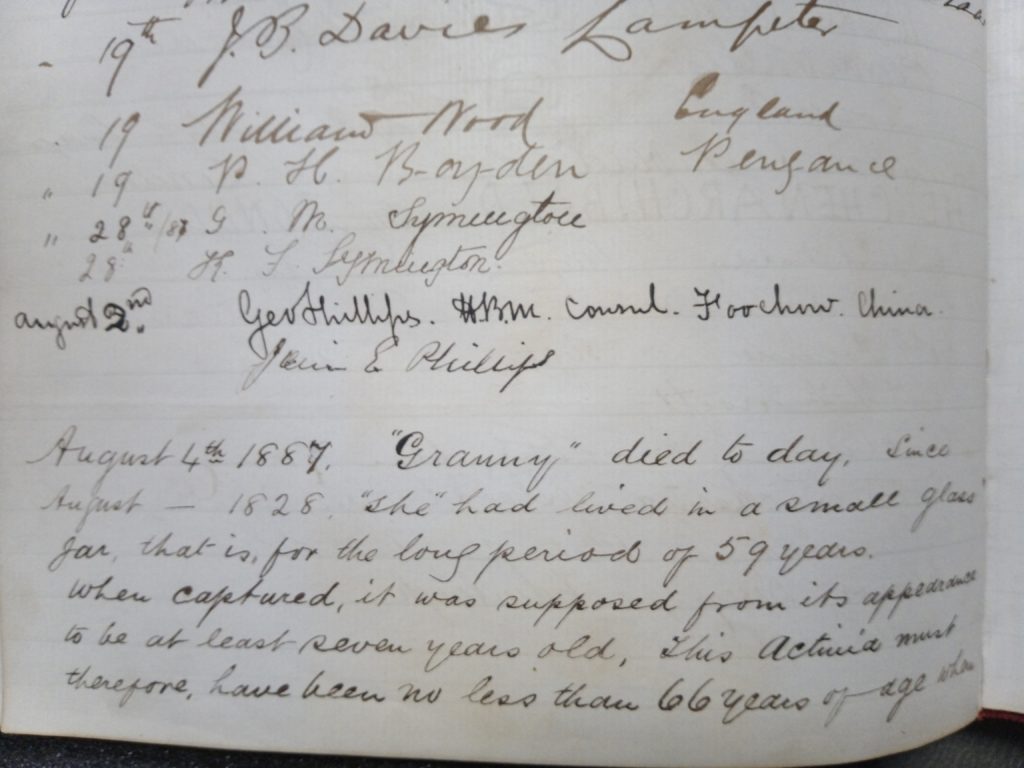 19th J. B. Davies Lampeter
19 William Wood England
" 19 P. H. Boyden Penzance
" 28th/87 G. M. Symington
28th H. F. Symington.
August 2nd. Geo Phillips. H.B.M. Consul. Foochow. China.
E Phillips
August 4th 1887. "Granny" died to day, Since
August — 1828, "she" had lived in a small glass
jar, that is, for the long period of 59 years.
When captured, it was supposed from its appearance
to be at least seven years old, This Actinia must
therefore, have been no less than 66 years of age when